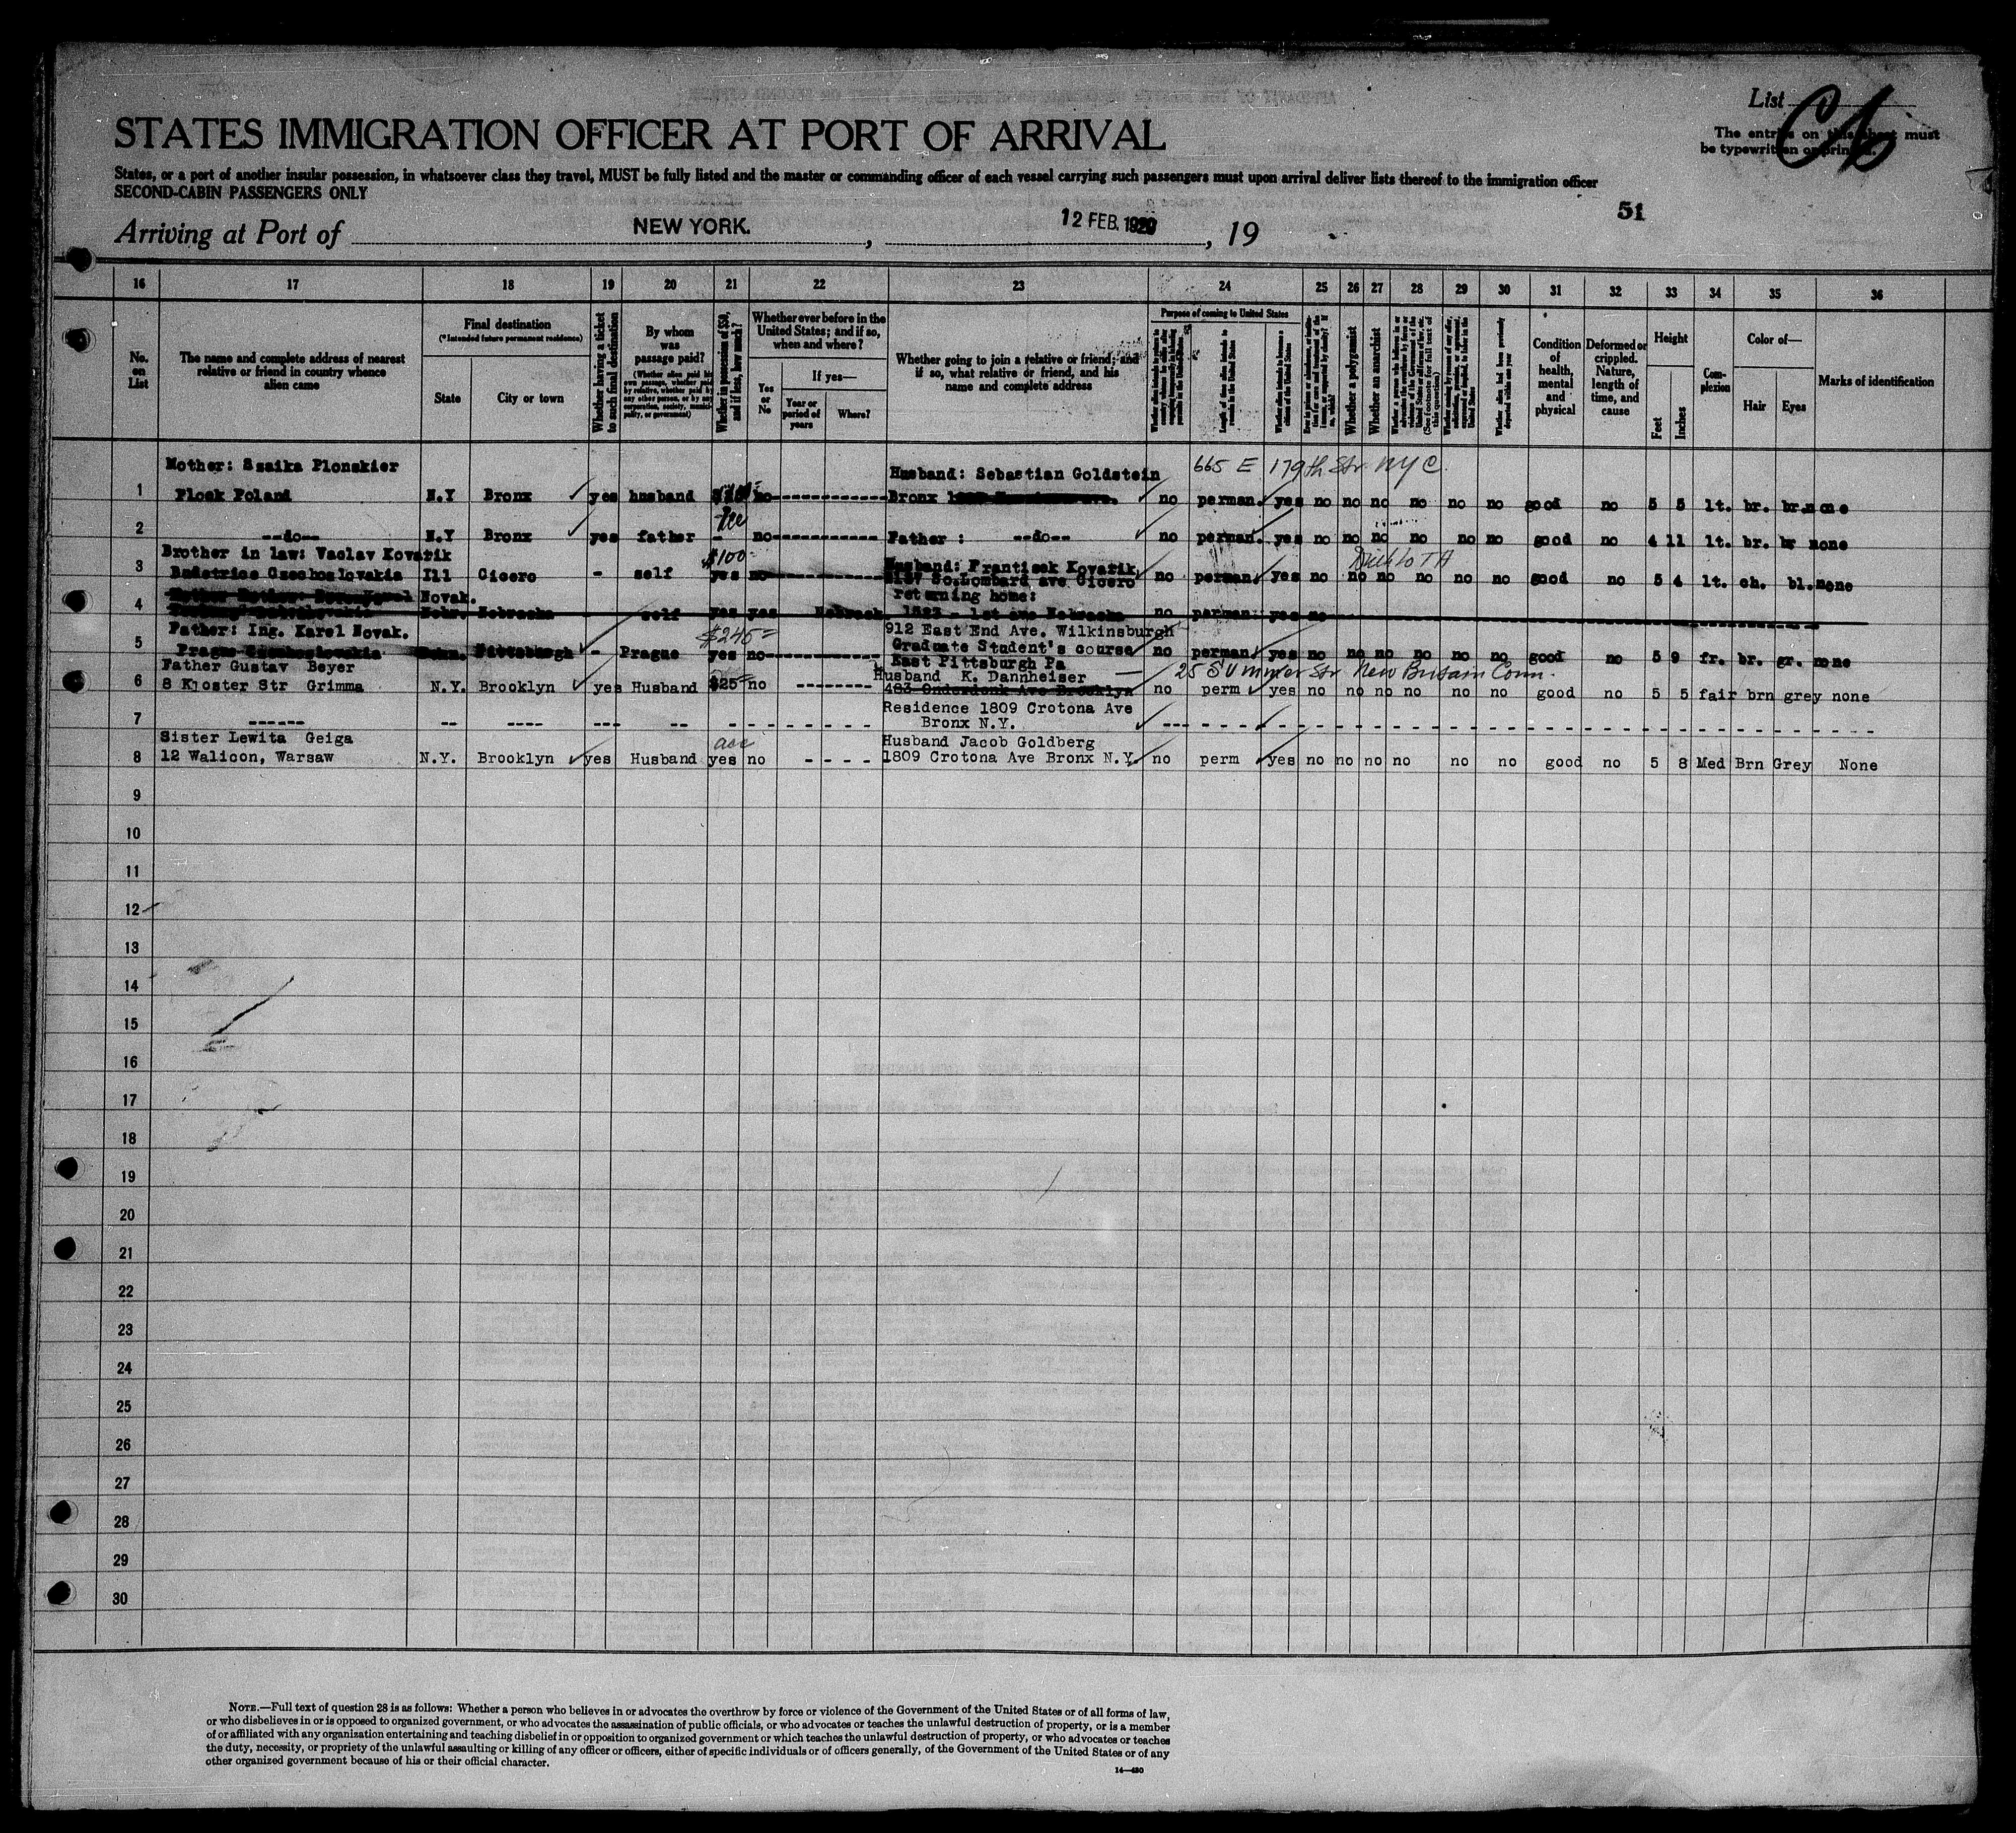 List
The entries on this sheet must
be typewritten or printed
STATES IMMIGRATION OFFICER AT PORT OF ARRIVAL
States, or a port of another insular possession, in whatsoever class they travel, MUST be fully listed and the master or commanding officer of each vessel carrying such passengers must upon arrival deliver lists thereof to the immigration officer
SECOND-CABIN PASSENGERS ONLY
51
Arriving at Port of NEW YORK. , 12 FEB. 1929 , 19
16 17 18 19 20 21 22 23 24 25 26 27 28 29 30 31 32 33 34 35 36
No. on List
The name and complete address of nearest relative or friend in country whence alien came
Final destination
(*Intended future permanent residence)
State
City or town
Whether having a ticket to such final destination
By whom was passage paid?
(Whether alien paid his own passage, whether paid by relative, whether paid by any other person, or by any corporation, society, municipality, or government)
Whether in possession of $50, and if less, how much?
Whether ever before in the United States; and if so, when and where?
Yes or No
If yes—
Year or period of years
Where?
Whether going to join a relative or friend; and if so, what relative or friend, and his name and complete address
Purpose of coming to United States
Length of time alien intends to remain in the United States
Whether alien intends to become a citizen of the United States
Whether a polygamist
Whether an anarchist
Condition of health, mental and physical
Deformed or crippled. Nature, length of time, and cause
Height
Feet
Inches
Complexion
Color of—
Hair
Eyes
Marks of identification
Mother: Szaika Plonskier Husband: Sebastian Goldstein 665 E 179th Str. NYC
1 Plock Poland N.Y Bronx yes husband no Bronx no perman. yes no no no no no no good no 5 5 lt. br. br. none
2 --do-- N.Y Bronx yes father - no Father : --do-- no perman. yes no no no no no no good no 4 11 lt. br. br none
Brother in law: Vaclav Kovarik $100- Husband: Frantisek Kovarik
3 Czechoslovakia Ill Cicero - self yes no So.Lombard ave Cicero no perman. yes no no no no no no good no 5 4 lt. ch. bl. none
Novak. returning home:
4 Nebr. Nebraska self yes yes 1st ave Nebraska no perman. yes no
Father: Ing. Karel Novak. $245= 912 East End Ave. Wilkinsburgh
5 Prague Czechoslovakia Pittsburgh - Prague yes no Graduate Student's course no perman. yes no no no no no no good no 5 9 fr. br. gr. none
East Pittsburgh Pa
Father Gustav Beyer Husband K. Dannheiser 25 Summer Str New Britain Conn.
6 8 Kloster Str Grimma N.Y. Brooklyn yes Husband $25= no 483 Onderdonk Ave Brooklyn no perm yes no no no no no no good no 5 5 fair brn grey none
Residence 1809 Crotona Ave
7 Bronx N.Y.
Sister Lewita Geiga Husband Jacob Goldberg
8 12 Walicon, Warsaw N.Y. Brooklyn yes Husband yes no 1809 Crotona Ave Bronx N.Y. no perm yes no no no no no no good no 5 8 Med Brn Grey None
9
10
11
12
13
14
15
16
17
18
19
20
21
22
23
24
25
26
27
28
29
30
NOTE.—Full text of question 28 is as follows: Whether a person who believes in or advocates the overthrow by force or violence of the Government of the United States or of all forms of law,
or who disbelieves in or is opposed to organized government, or who advocates the assassination of public officials, or who advocates or teaches the unlawful destruction of property, or is a member
of or affiliated with any organization entertaining and teaching disbelief in or opposition to organized government or which teaches the unlawful destruction of property, or who advocates or teaches
the duty, necessity, or propriety of the unlawful assaulting or killing of any officer or officers, either of specific individuals or of officers generally, of the Government of the United States or of any
other organized government because of his or their official character.
14—430